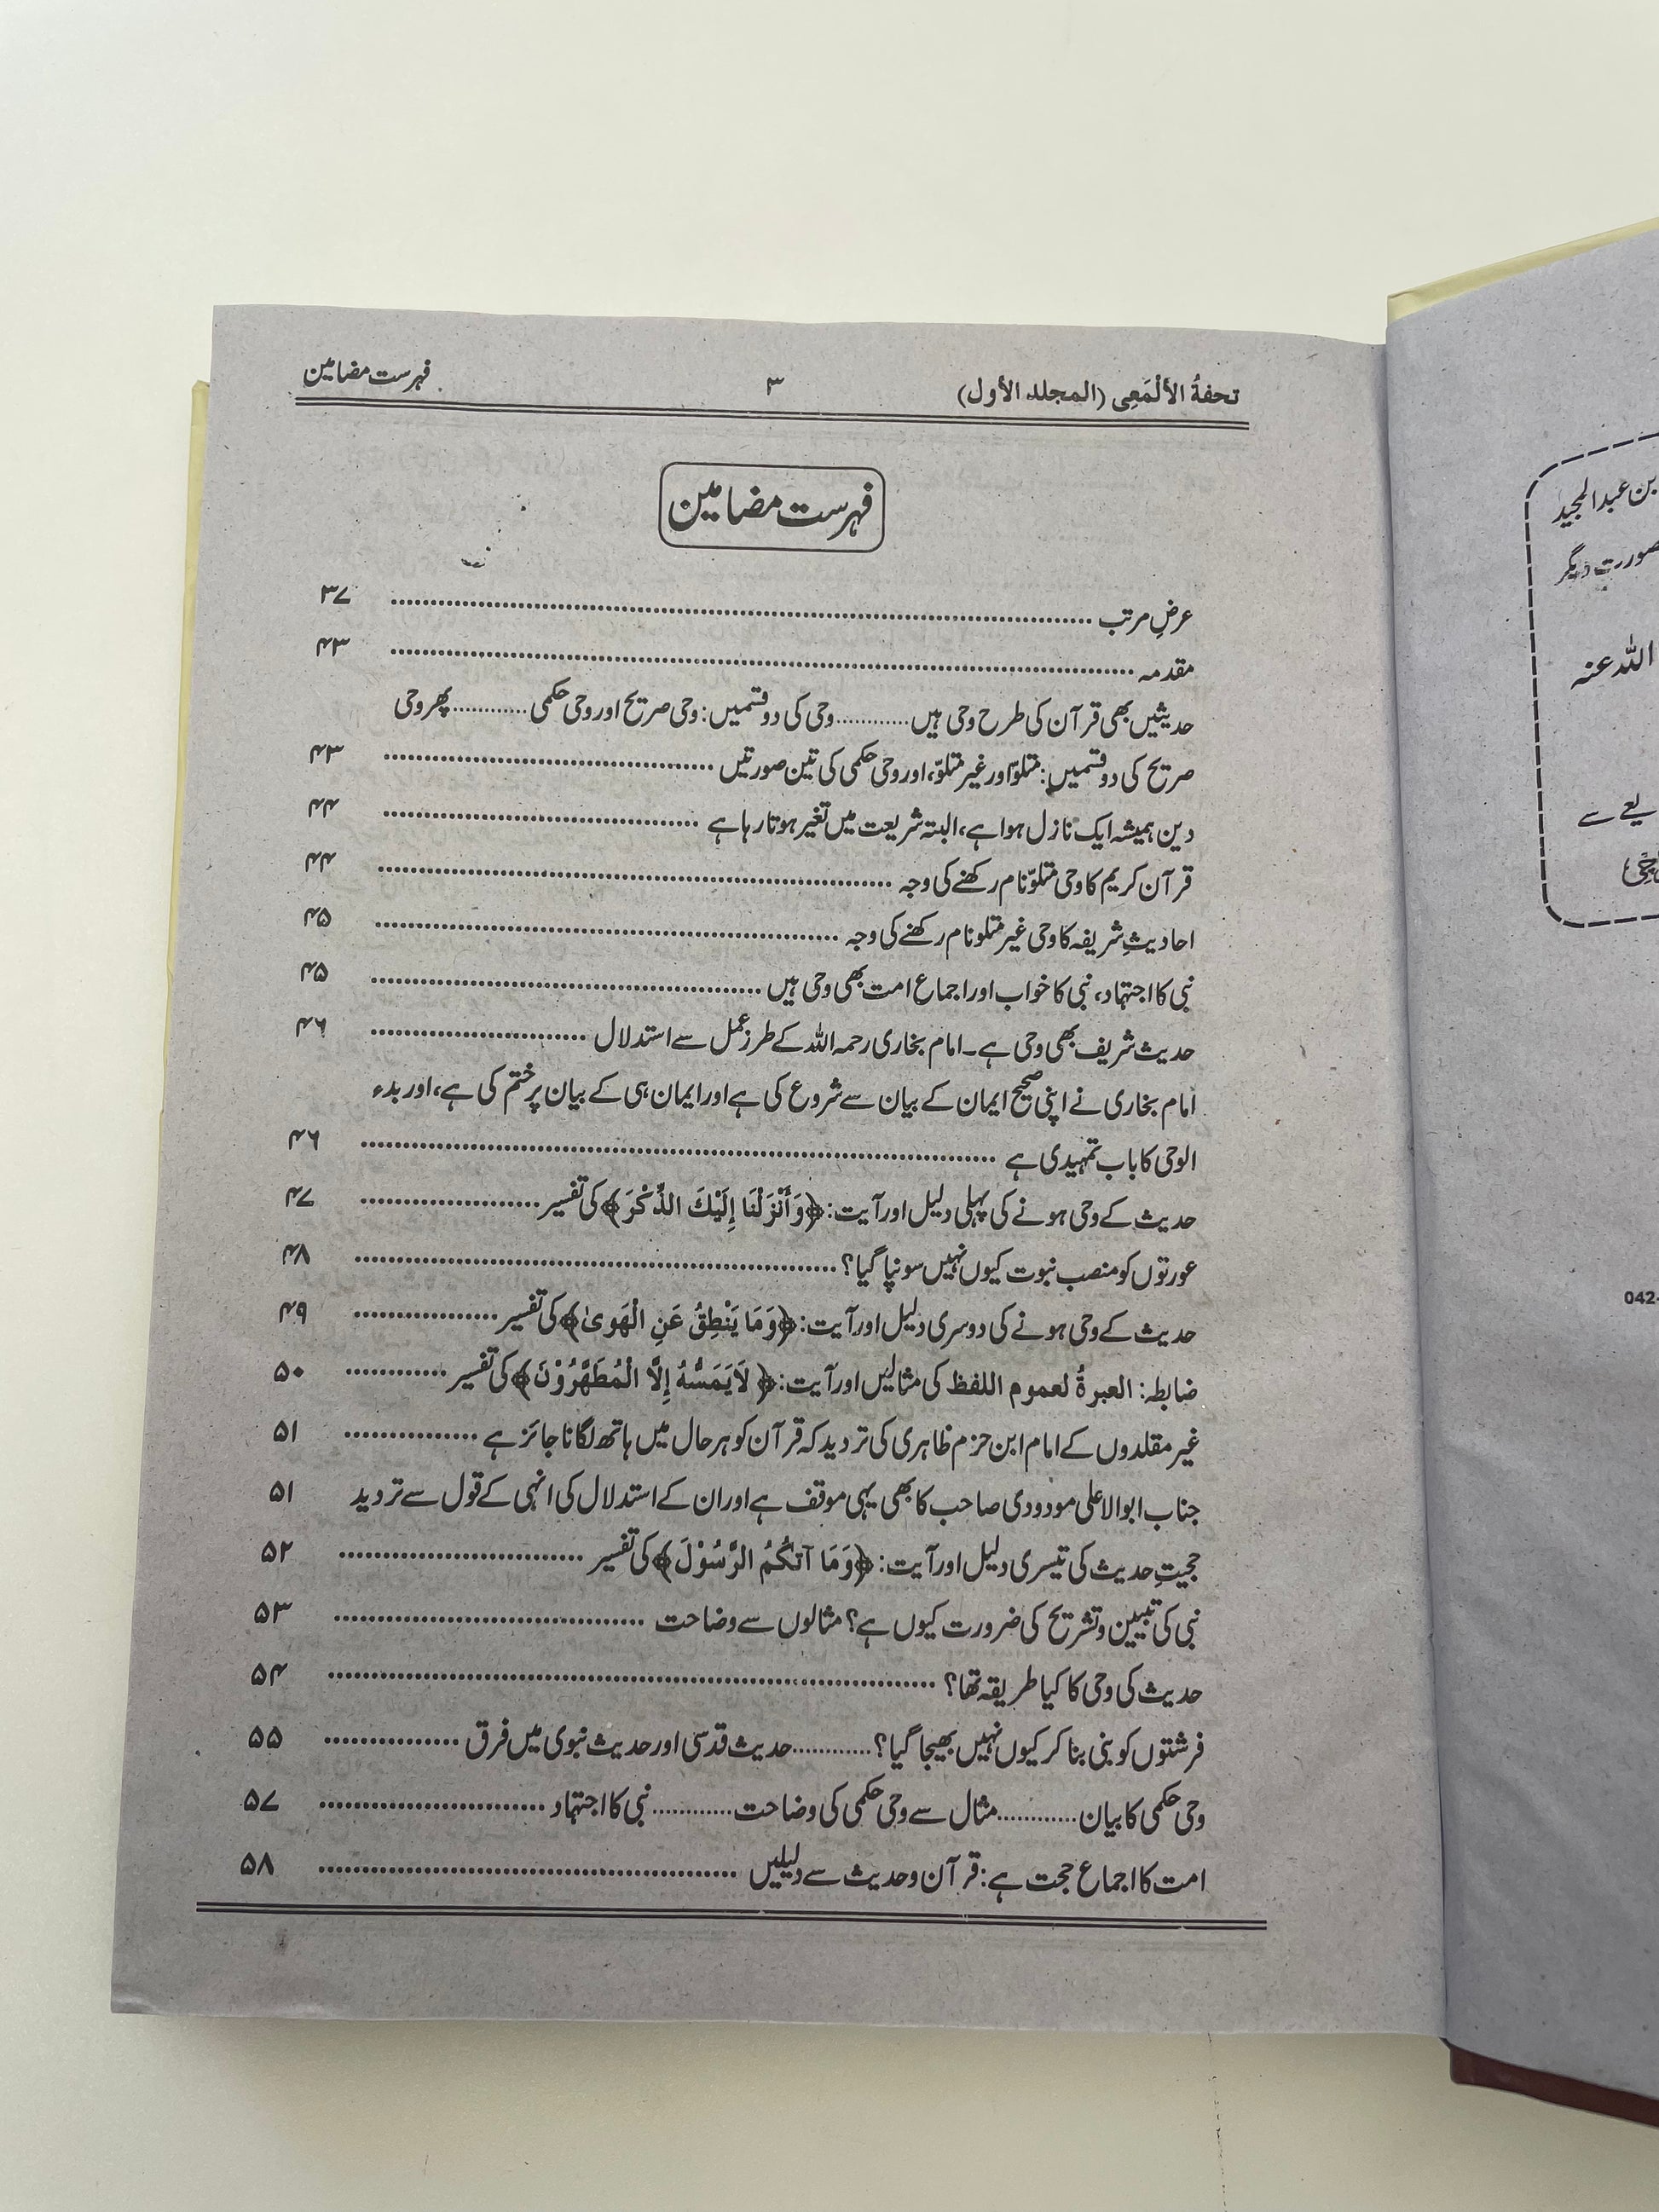 تحفةُ الألْمَعِی (المجلد الأول) ۳ فہرست مضامین
فہرست مضامین
عرضِ مرتب ۳۷
مقدمہ ۴۳
حدیثیں بھی قرآن کی طرح وحی ہیں ............ وحی کی دو قسمیں: وحی صریح اور وحی حکمی ............ پھر وحی
صریح کی دو قسمیں: متلوّ اور غیر متلوّ، اور وحی حکمی کی تین صورتیں ۴۳
دین ہمیشہ ایک نازل ہوا ہے، البتہ شریعت میں تغیر ہوتا رہا ہے ۴۴
قرآن کریم کا وحی متلوّ نام رکھنے کی وجہ ۴۴
احادیثِ شریفہ کا وحی غیر متلو نام رکھنے کی وجہ ۴۵
نبی کا اجتہاد، نبی کا خواب اور اجماع امت بھی وحی ہیں ۴۵
حدیث شریف بھی وحی ہے۔ امام بخاری رحمہ اللہ کے طرز عمل سے استدلال ۴۶
امام بخاری نے اپنی صحیح ایمان کے بیان سے شروع کی ہے اور ایمان ہی کے بیان پر ختم کی ہے، اور بدء
الوحی کا باب تمہیدی ہے ۴۶
حدیث کے وحی ہونے کی پہلی دلیل اور آیت: ﴿وَأَنْزَلْنَا إِلَيْكَ الذِّكْرَ﴾ کی تفسیر ۴۷
عورتوں کو منصب نبوت کیوں نہیں سونپا گیا؟ ۴۸
حدیث کے وحی ہونے کی دوسری دلیل اور آیت: ﴿وَمَا يَنْطِقُ عَنِ الْهَوىٰ﴾ کی تفسیر ۴۹
ضابطہ: العبرةُ لعموم اللفظ کی مثالیں اور آیت: ﴿لَايَمَسُّهُ إِلَّا الْمُطَهَّرُوْنَ﴾ کی تفسیر ۵۰
غیر مقلدوں کے امام ابن حزم ظاہری کی تردید کہ قرآن کو ہر حال میں ہاتھ لگانا جائز ہے ۵۱
جناب ابوالاعلی مودودی صاحب کا بھی یہی موقف ہے اور ان کے استدلال کی انہی کے قول سے تردید ۵۱
حجیتِ حدیث کی تیسری دلیل اور آیت: ﴿وَمَا آتكُمُ الرَّسُوْلَ﴾ کی تفسیر ۵۲
نبی کی تبیین وتشریح کی ضرورت کیوں ہے؟ مثالوں سے وضاحت ۵۳
حدیث کی وحی کا کیا طریقہ تھا؟ ۵۴
فرشتوں کو نبی بنا کر کیوں نہیں بھیجا گیا؟ ............ حدیث قدسی اور حدیث نبوی میں فرق ۵۵
وحی حکمی کا بیان ............ مثال سے وحی حکمی کی وضاحت ............ نبی کا اجتہاد ۵۷
امت کا اجماع حجت ہے: قرآن وحدیث سے دلیلیں ۵۸
بن عبدالمجید
صورت دیگر
اللہ عنہ
042-